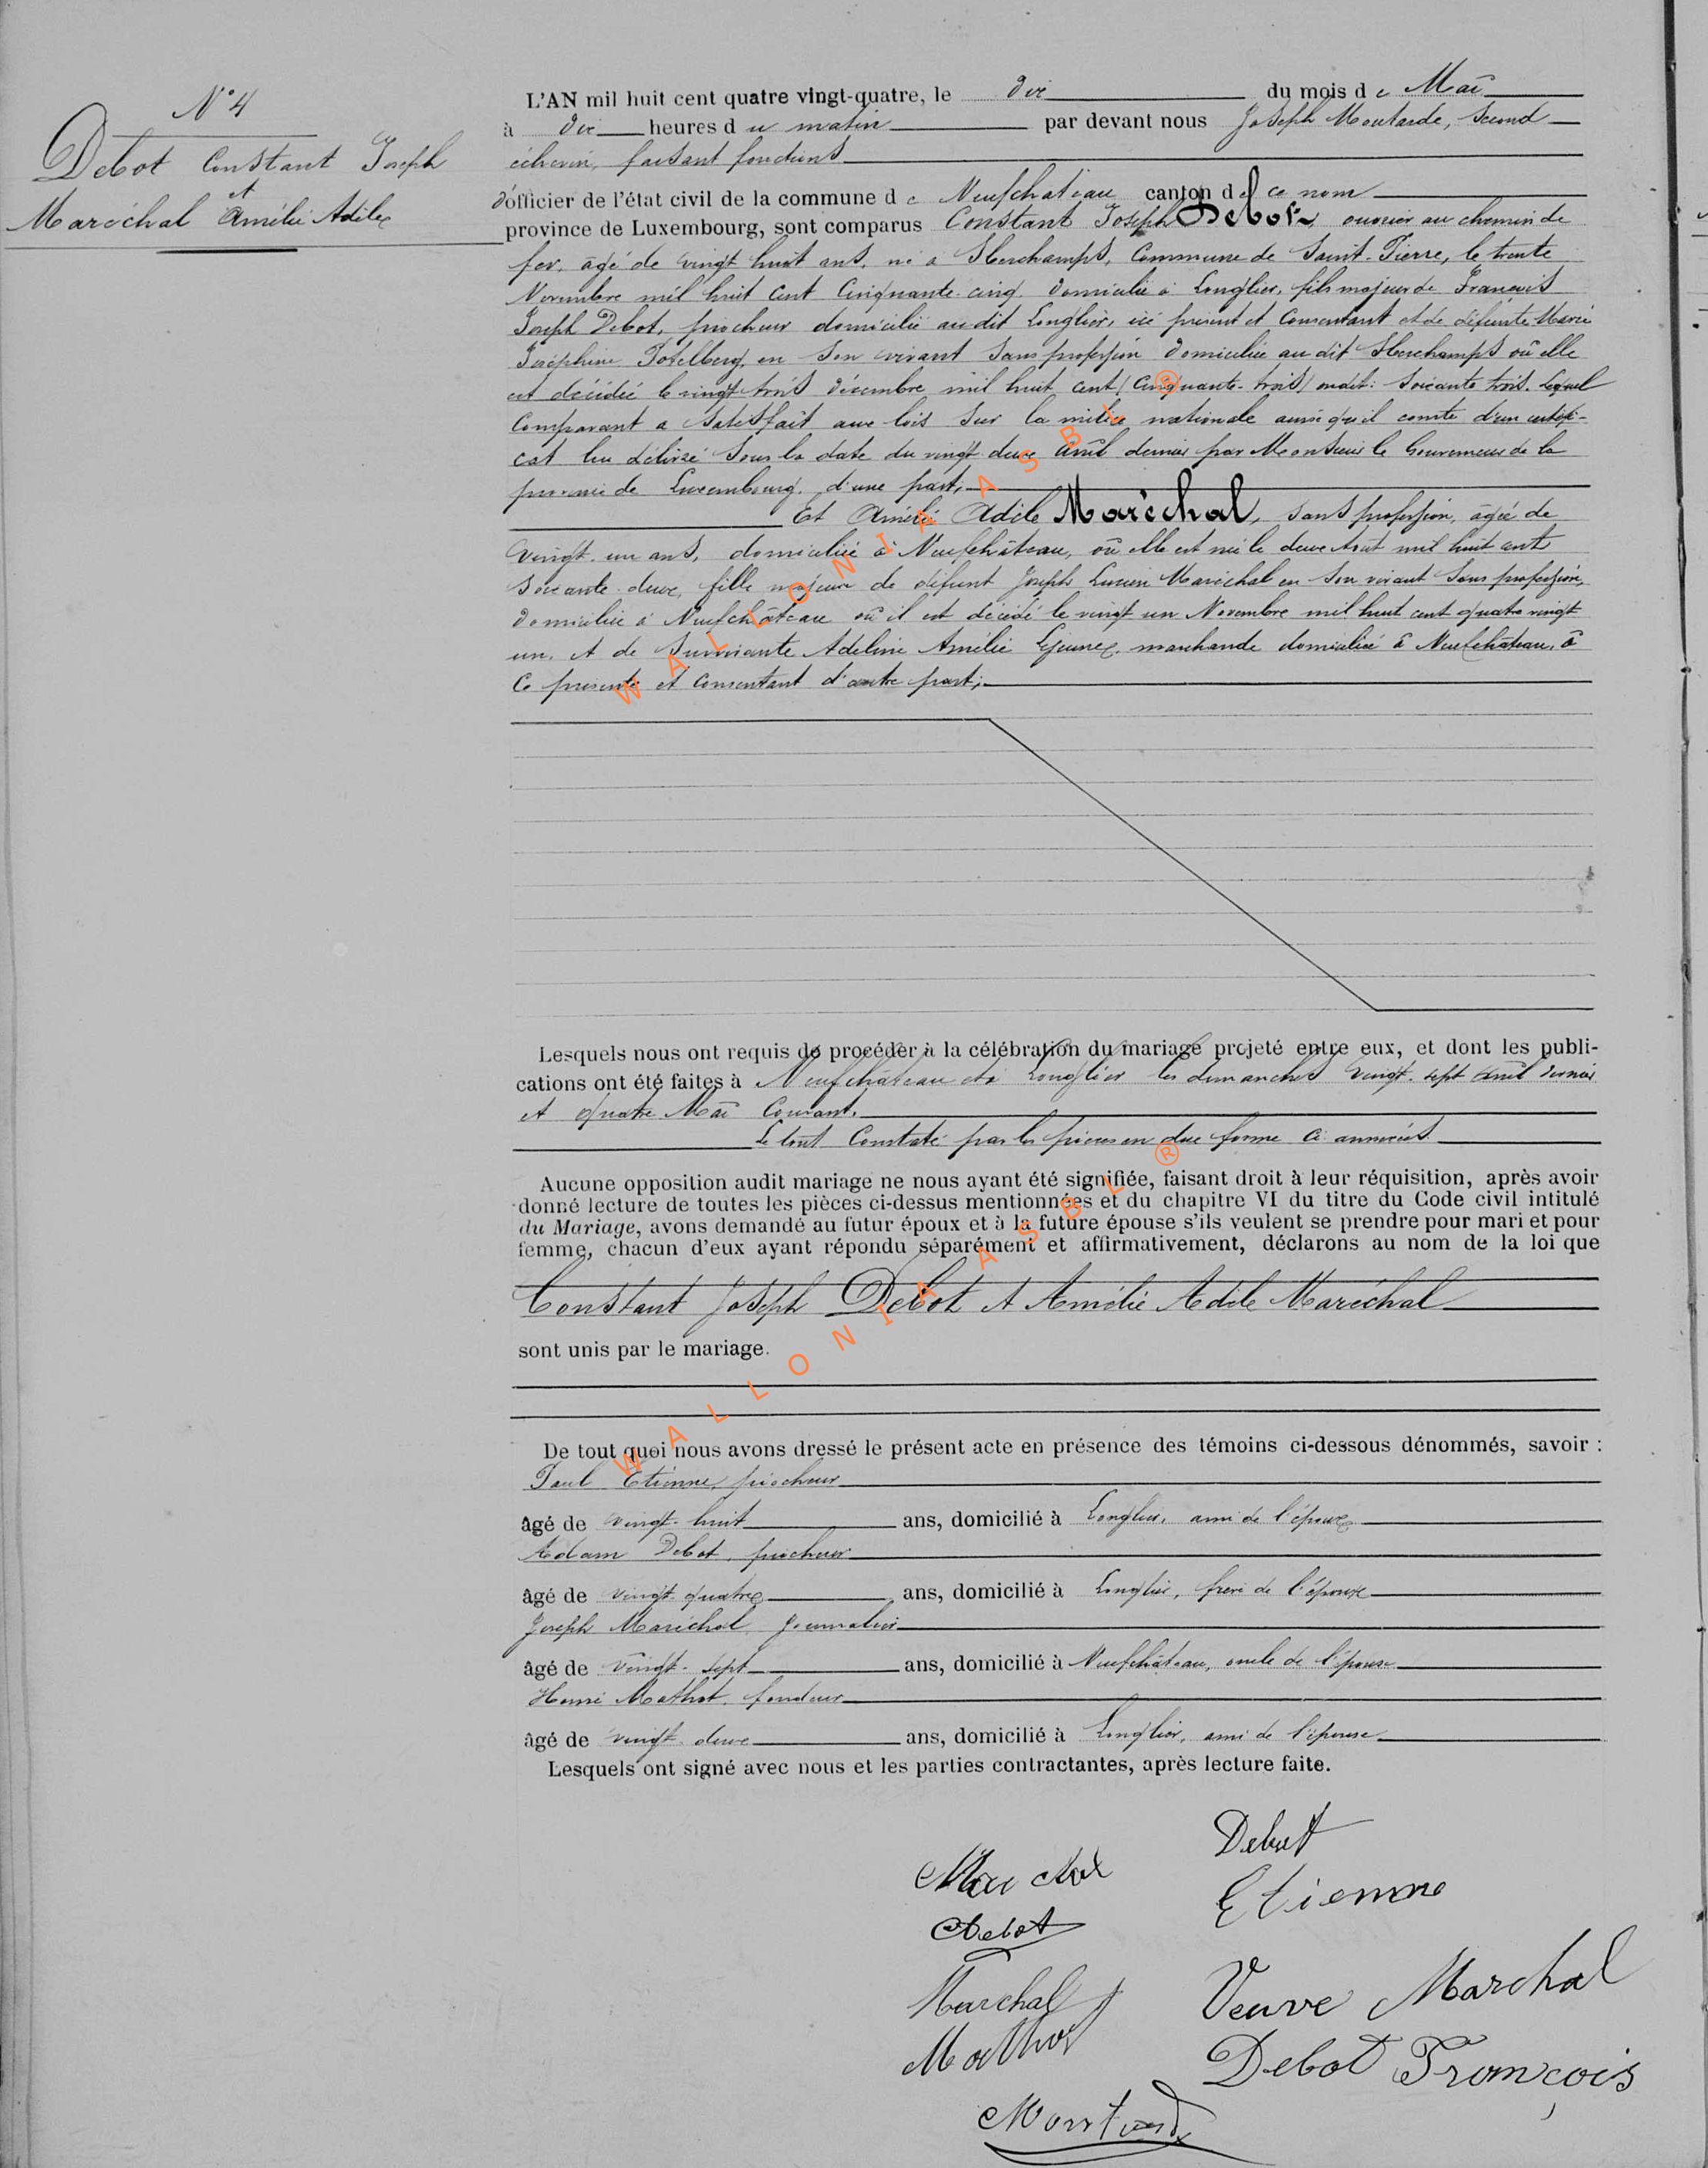 N° 4
Debot Constant Joseph
et
Maréchal Amélie Adèle
L'AN mil huit cent quatre vingt-quatre, le dix du mois de Mai
à dix heures du matin par devant nous Joseph Moutarde, second
échevin, faisant fonctions
d'officier de l'état civil de la commune de Neufchateau canton de ce nom
province de Luxembourg, sont comparus Constant Joseph Debot, ouvrier au chemin de
fer, âgé de vingt huit ans, né à Sberchamps, Commune de Saint-Pierre, le trente
Novembre mil huit cent cinquante-cinq, domicilié à Longlier, fils majeur de François
Joseph Debot, piocheur domicilié au dit Longlier, ici présent et consentant et de défunte Marie
Joséphine Potelberg, en son vivant sans profession domiciliée au dit Sberchamps où elle
est décédée le vingt trois décembre mil huit cent (cinquante-trois) mdit: soixante trois. Lequel
Comparant a satisfait aux lois sur la milice nationale ainsi qu'il conste d'un certifi-
cat lui délivré sous la date du vingt deux avril dernier par Monsieur le Gouverneur de la
province de Luxembourg, d'une part;
Et Amélie Adèle Maréchal, sans profession, âgée de
vingt-un ans, domiciliée à Neufchâteau, où elle est née le deux Août mil huit cent
soixante-deux, fille majeure de défunt Joseph Lucien Maréchal en son vivant sans profession,
domicilié à Neufchâteau où il est décédé le vingt un Novembre mil huit cent quatre vingt
un, et de survivante Adeline Amélie Lejeune, marchande domiciliée à Neufchâteau, à
ce présente et consentant d'autre part;
Lesquels nous ont requis de procéder à la célébration du mariage projeté entre eux, et dont les publi-
cations ont été faites à Neufchâteau et à Longlier les dimanches vingt-sept avril dernier
et quatre Mai courant.
Le tout constaté par les pièces en due forme ci-annexées
Aucune opposition audit mariage ne nous ayant été signifiée, faisant droit à leur réquisition, après avoir
donné lecture de toutes les pièces ci-dessus mentionnées et du chapitre VI du titre du Code civil intitulé
du Mariage, avons demandé au futur époux et à la future épouse s'ils veulent se prendre pour mari et pour
femme, chacun d'eux ayant répondu séparément et affirmativement, déclarons au nom de la loi que
Constant Joseph Debot et Amélie Adèle Maréchal
sont unis par le mariage.
De tout quoi nous avons dressé le présent acte en présence des témoins ci-dessous dénommés, savoir :
Paul Etienne, piocheur
âgé de vingt-huit ans, domicilié à Longlier, ami de l'époux
Adam Debot, piocheur
âgé de vingt quatre ans, domicilié à Longlier, frère de l'époux
Joseph Maréchal, Journalier
âgé de vingt-sept ans, domicilié à Neufchâteau, oncle de l'épouse
Henri Mathot, fondeur
âgé de vingt-deux ans, domicilié à Longlier, ami de l'épouse
Lesquels ont signé avec nous et les parties contractantes, après lecture faite.
Debot
Etienne
ADebot
Marchal
Veuve Marchal
Mathot
Debot François
WALLONIA ASBL ®
WALLONIA ASBL ®